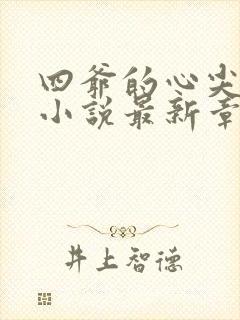 四爷的心尖
小说最新章
井上智德